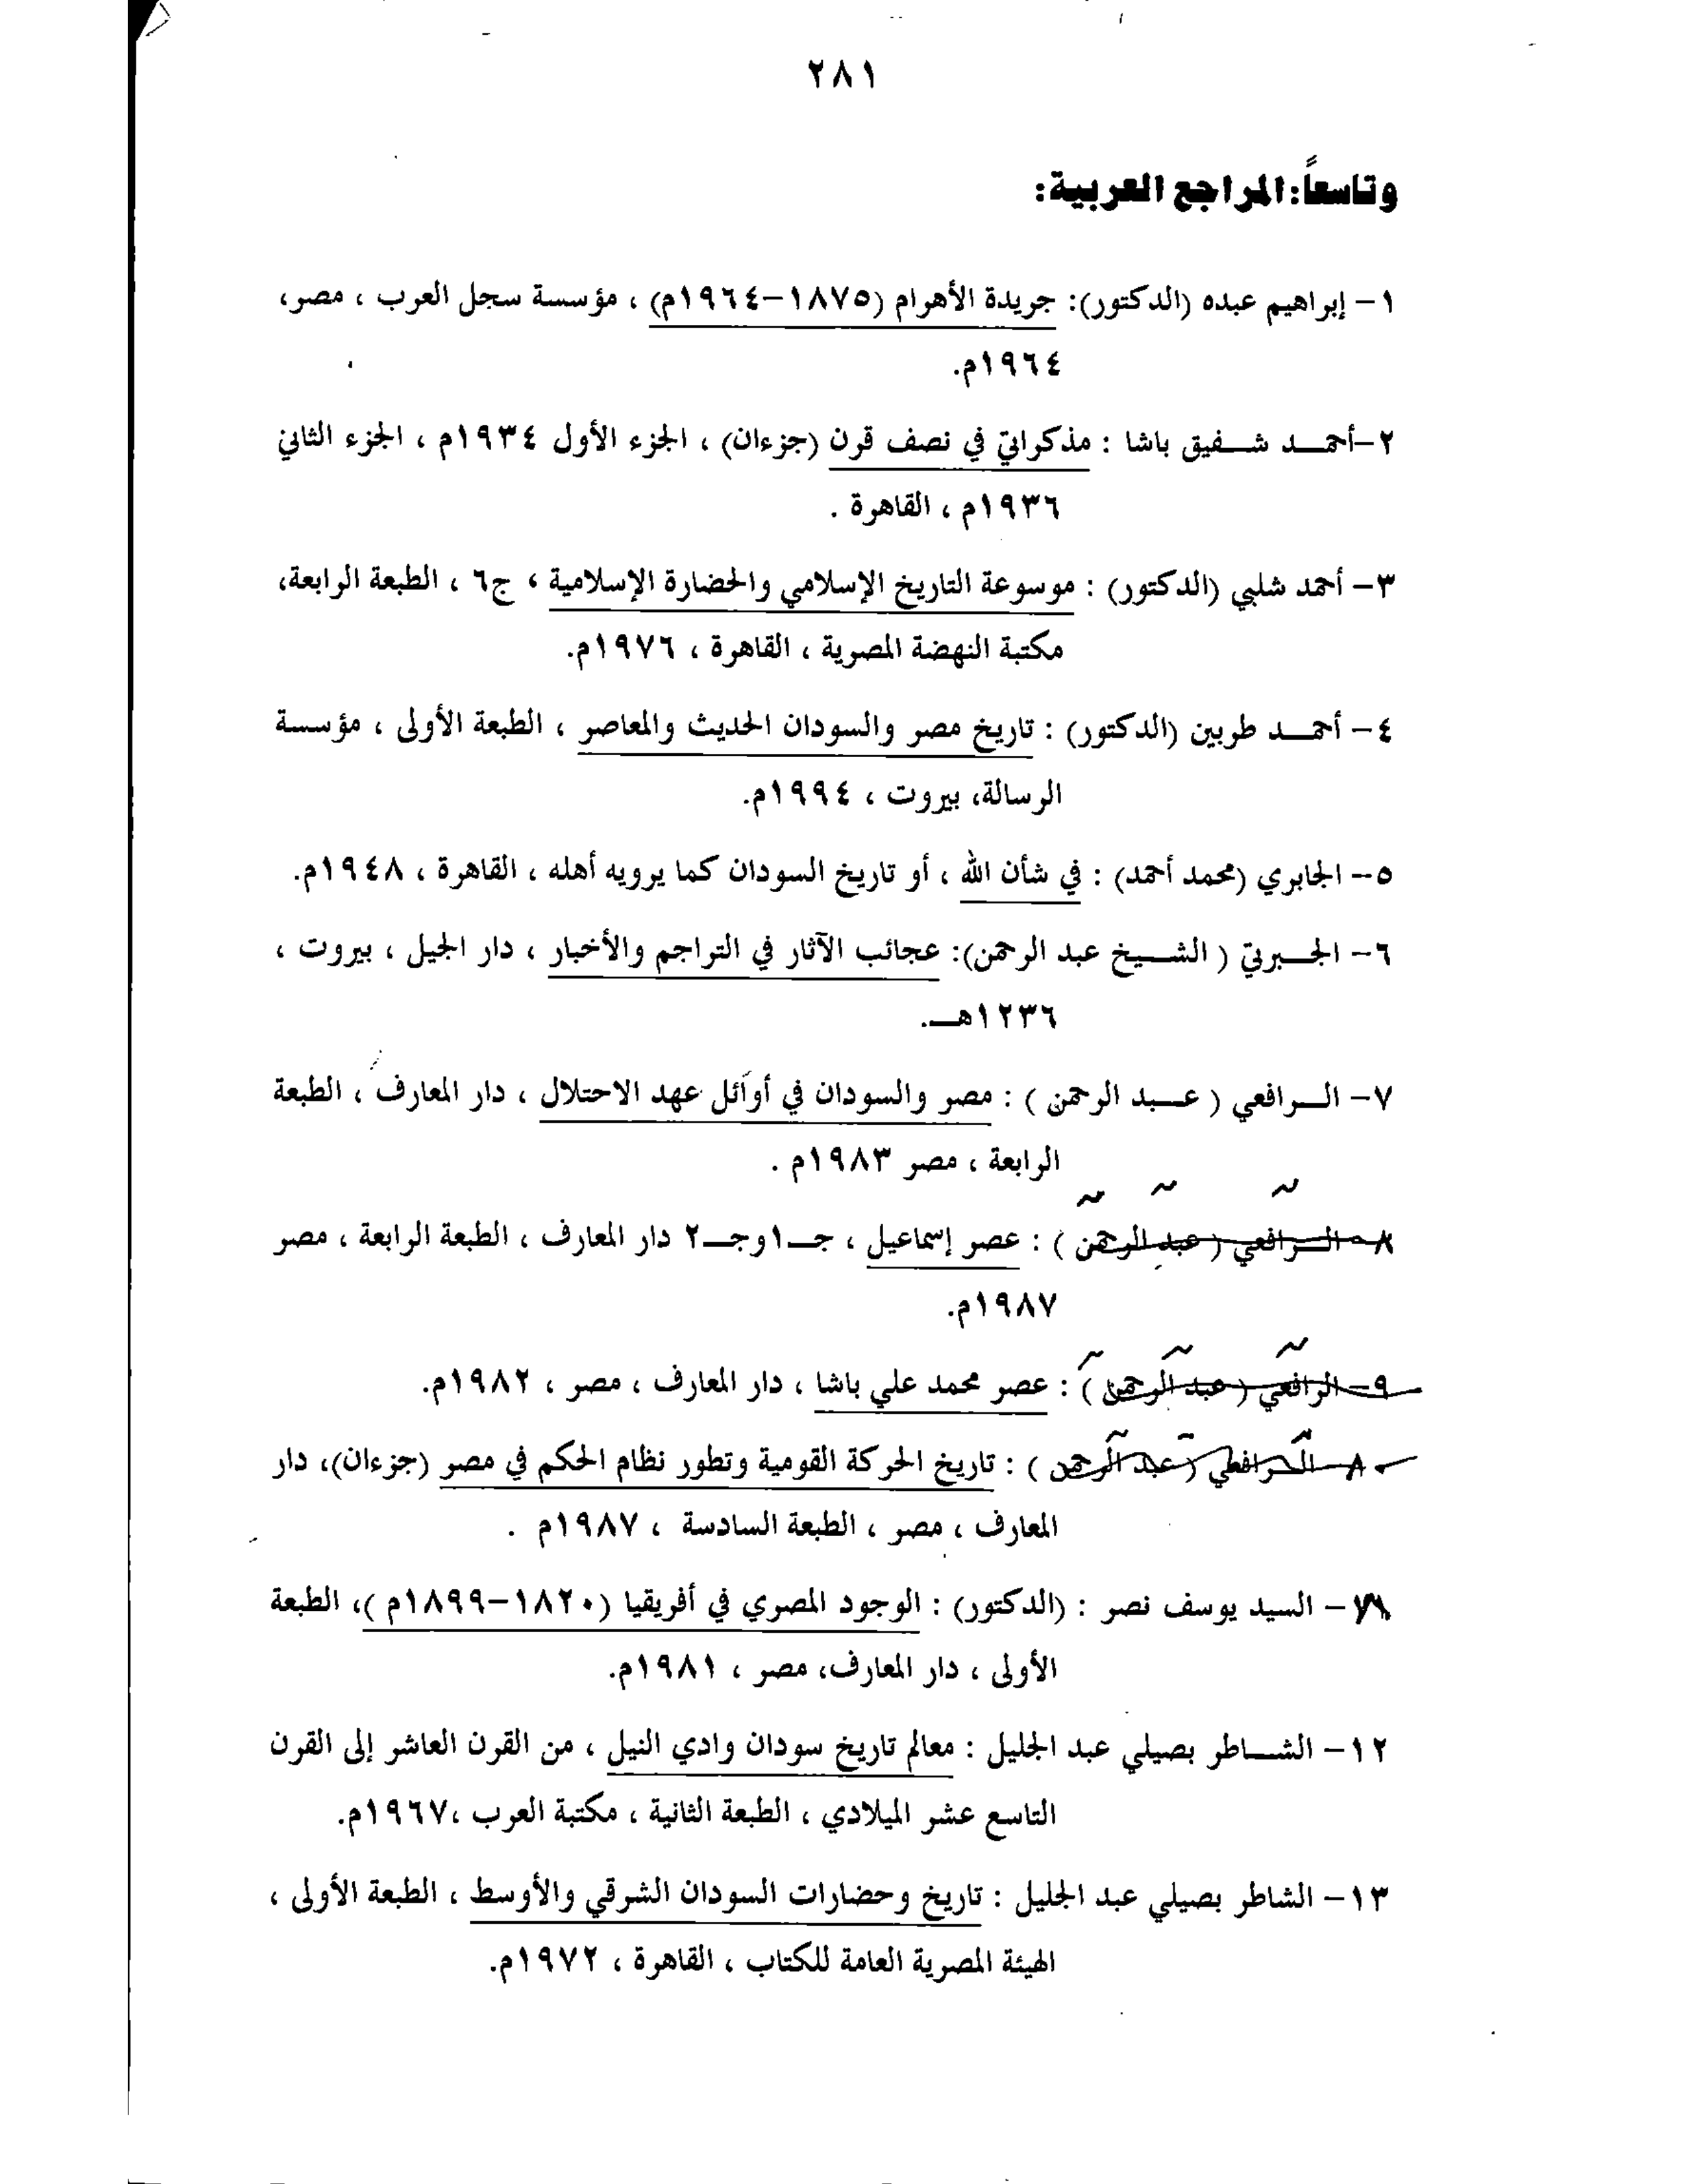 ٢٨١
وتاسعاً: المراجع العربية:
١- إبراهيم عبده (الدكتور): جريدة الأهرام (١٨٧٥-١٩٦٤م) ، مؤسسة سجل العرب ، مصر،
١٩٦٤م.
٢-أحمد شفيق باشا : مذكراتي في نصف قرن (جزءان) ، الجزء الأول ١٩٣٤م ، الجزء الثاني
١٩٣٦م ، القاهرة .
٣- أحمد شلبي (الدكتور) : موسوعة التاريخ الإسلامي والحضارة الإسلامية ، ج٦ ، الطبعة الرابعة،
مكتبة النهضة المصرية ، القاهرة ، ١٩٧٦م.
٤- أحمد طربين (الدكتور) : تاريخ مصر والسودان الحديث والمعاصر ، الطبعة الأولى ، مؤسسة
الرسالة، بيروت ، ١٩٩٤م.
٥- الجابري (محمد أحمد) : في شأن الله ، أو تاريخ السودان كما يرويه أهله ، القاهرة ، ١٩٤٨م.
٦- الجبرتي ( الشيخ عبد الرحمن): عجائب الآثار في التراجم والأخبار ، دار الجيل ، بيروت ،
١٢٣٦هـ.
٧- الرافعي ( عبد الرحمن ) : مصر والسودان في أوائل عهد الاحتلال ، دار المعارف ، الطبعة
الرابعة ، مصر ١٩٨٣م .
٨- الرافعي ( عبد الرحمن ) : عصر إسماعيل ، جـ١وجـ٢ دار المعارف ، الطبعة الرابعة ، مصر
١٩٨٧م.
٩- الرافعي ( عبد الرحمن ) : عصر محمد علي باشا ، دار المعارف ، مصر ، ١٩٨٢م.
الرافعي ( عبد الرحمن ) : تاريخ الحركة القومية وتطور نظام الحكم في مصر (جزءان)، دار
المعارف ، مصر ، الطبعة السادسة ، ١٩٨٧م .
- السيد يوسف نصر : (الدكتور) : الوجود المصري في أفريقيا (١٨٢٠-١٨٩٩م )، الطبعة
الأولى ، دار المعارف، مصر ، ١٩٨١م.
١٢- الشاطر بصيلي عبد الجليل : معالم تاريخ سودان وادي النيل ، من القرن العاشر إلى القرن
التاسع عشر الميلادي ، الطبعة الثانية ، مكتبة العرب ،١٩٦٧م.
١٣- الشاطر بصيلي عبد الجليل : تاريخ وحضارات السودان الشرقي والأوسط ، الطبعة الأولى ،
الهيئة المصرية العامة للكتاب ، القاهرة ، ١٩٧٢م.